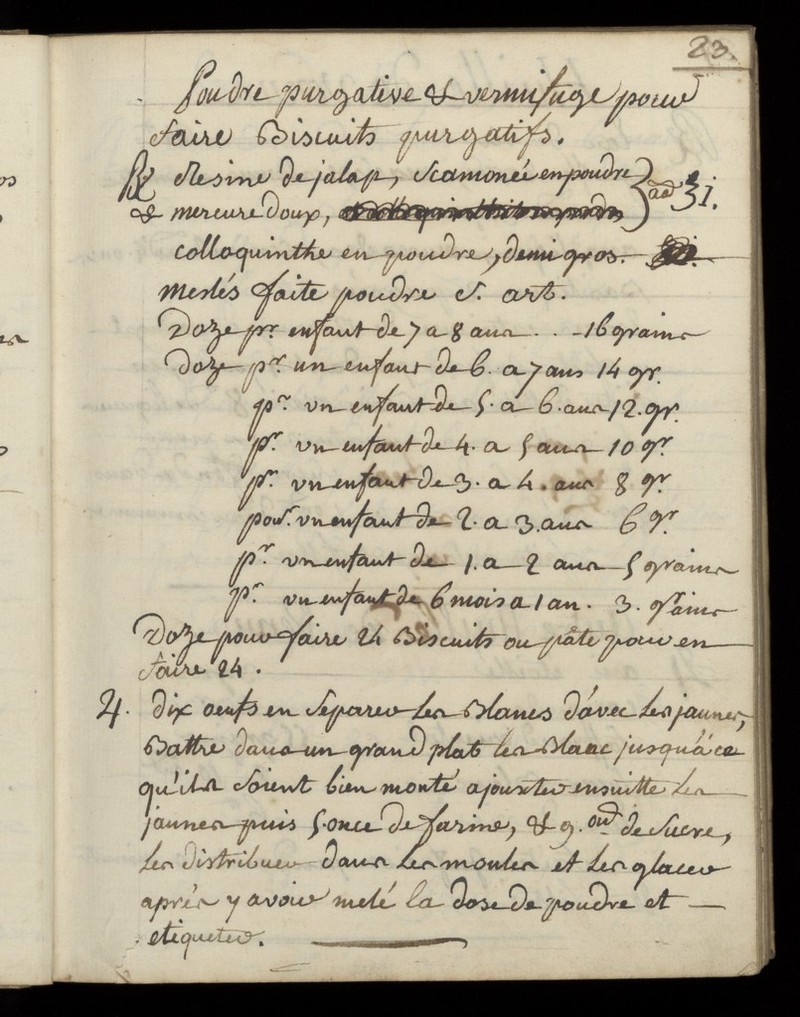 23.
Poudre purgative & vermifuge pour
faire Biscuits purgatifs.
℞ Resine de jalap, Scamonée en poudre } aa ʒi.
& mercure doux,
colloquinthe en poudre, demi gros.
meslés faite poudre S. art.
Doze pr. enfant de 7 a 8 ans . . - 16 grains
Doze pr. un enfant de 6. a 7 ans 14 gr.
pr. un enfant de 5. a 6. ans 12. gr.
pr. un enfant de 4. a 5 ans 10 gr.
pr. un enfant de 3. a 4. ans 8 gr.
pour. un enfant de 2. a 3. ans 6 gr.
pr. un enfant de 1. a 2 ans 5 grains
pr. un enfant de 6 mois a 1 an. 3. grains
Doze pour faire 24 Biscuits ou pâte pour en
faire 24.
♃. dix oeufs en Separer les Blancs d'avec les jaunes,
Battre dans un grand plat les Blanc jusqu'à ce
qu'ils Soient bien monté ajouster ensuitte les
jaunes puis 5. once de farine, & 9. onc. de Sucre,
les distribuer dans les moules et les glacer
après y avoir melé la dose de poudre et
etiqueter.